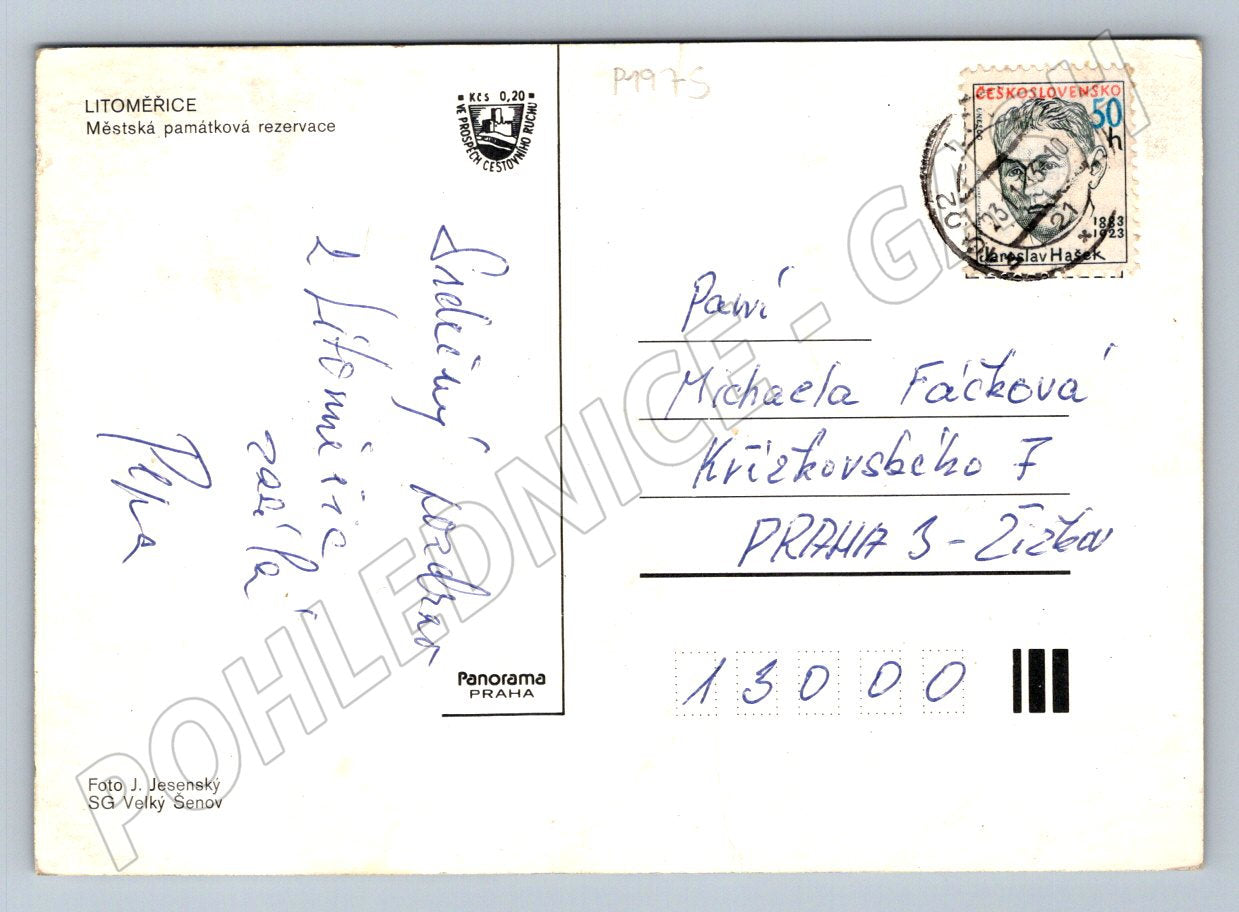 LITOMĚŘICE
Městská památková rezervace
Kčs 0,20
VE PROSPĚCH CESTOVNÍHO RUCHU
P1975
ČESKOSLOVENSKO
50
h
1883
1923
Jaroslav Hašek
Srdečný pozdrav
z Litoměřic
zasílá
Pepa
Paní
Michaela Fáčková
Křížkovského 7
PRAHA 3 - Žižkov
13000
Panorama
PRAHA
Foto J. Jesenský
SG Velký Šenov
POHLEDNICE - G